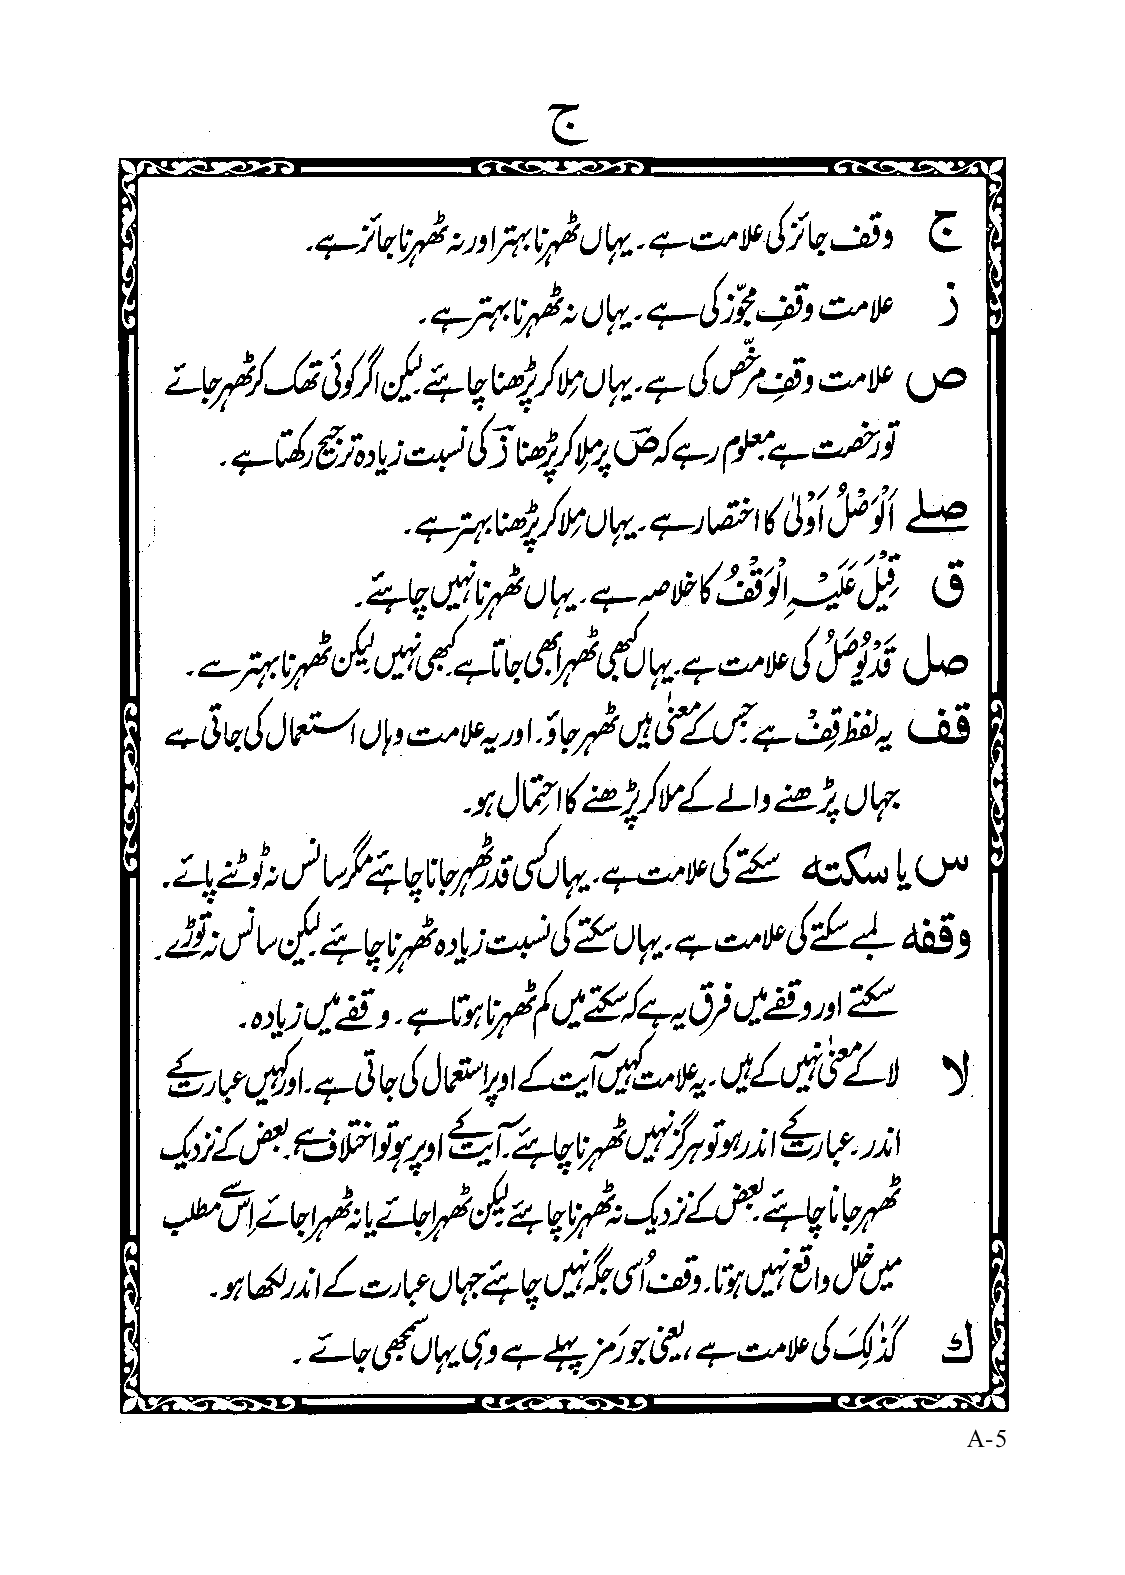 ج
ج وقف جائز کی علامت ہے۔ یہاں ٹھہرنا بہتر اور نہ ٹھہرنا جائز ہے۔
ز علامت وقفِ مجوّز کی ہے۔ یہاں نہ ٹھہرنا بہتر ہے۔
ص علامت وقفِ مرخّص کی ہے۔ یہاں مِلا کر پڑھنا چاہئے۔ لیکن اگر کوئی تھک کر ٹھہر جائے
تو رخصت ہے معلوم رہے کہ صٓ پر مِلا کر پڑھنا زٓ کی نسبت زیادہ ترجیح رکھتا ہے۔
صلے اَلْوَصْلُ اَوْلیٰ کا اختصار ہے۔ یہاں مِلا کر پڑھنا بہتر ہے۔
ق قِیْلَ عَلَیْہِ الْوَقْفُ کا خلاصہ ہے۔ یہاں ٹھہرنا نہیں چاہئے۔
صل قَدْ یُوْصَلُ کی علامت ہے۔ یہاں کبھی ٹھہرا بھی جاتا ہے۔ کبھی نہیں لیکن ٹھہرنا بہتر ہے۔
قف یہ لفظ قِفْ ہے جس کے معنیٰ ہیں ٹھہر جاؤ۔ اور یہ علامت وہاں استعمال کی جاتی ہے
جہاں پڑھنے والے کے ملا کر پڑھنے کا احتمال ہو۔
س یا سکتہ سکتے کی علامت ہے۔ یہاں کسی قدر ٹھہر جانا چاہئے مگر سانس نہ ٹوٹنے پائے۔
وقفہ لمبے سکتے کی علامت ہے۔ یہاں سکتے کی نسبت زیادہ ٹھہرنا چاہئے۔ لیکن سانس نہ توڑے۔
سکتے اور وقفے میں فرق یہ ہے کہ سکتے میں کم ٹھہرنا ہوتا ہے۔ وقفے میں زیادہ۔
لا لا کے معنیٰ نہیں کے ہیں۔ یہ علامت کہیں آیت کے اوپر استعمال کی جاتی ہے۔ اور کہیں عبارت کے
اندر۔ عبارت کے اندر ہو تو ہرگز نہیں ٹھہرنا چاہئے۔ آیت کے اوپر ہو تو اختلاف ہے۔ بعض کے نزدیک
ٹھہر جانا چاہئے۔ بعض کے نزدیک نہ ٹھہرنا چاہئے۔ لیکن ٹھہرا جائے یا نہ ٹھہرا جائے اِس سے مطلب
میں خلل واقع نہیں ہوتا۔ وقف اُسی جگہ نہیں چاہئے جہاں عبارت کے اندر لکھا ہو۔
ك کَذٰلِکَ کی علامت ہے، یعنی جو رَمز پہلے ہے وہی یہاں سمجھی جائے۔
A-5